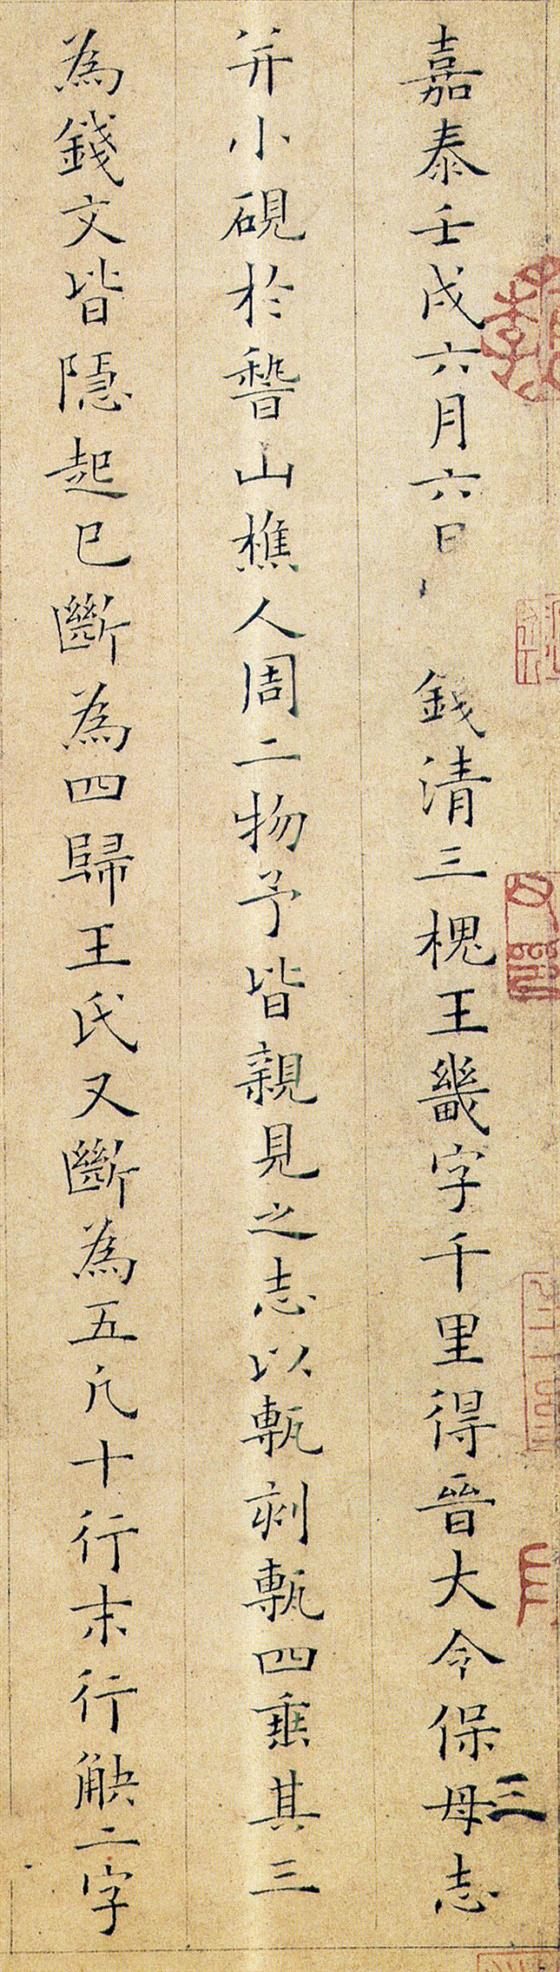 嘉泰壬戌六月六日 錢清三槐王畿字千里得晉大令保母志
三
并小硯於稽山樵人周二物予皆親見之志以甎刻甎四垂其三
為錢文皆隱起已斷為四歸王氏又斷為五凡十行末行缺二字